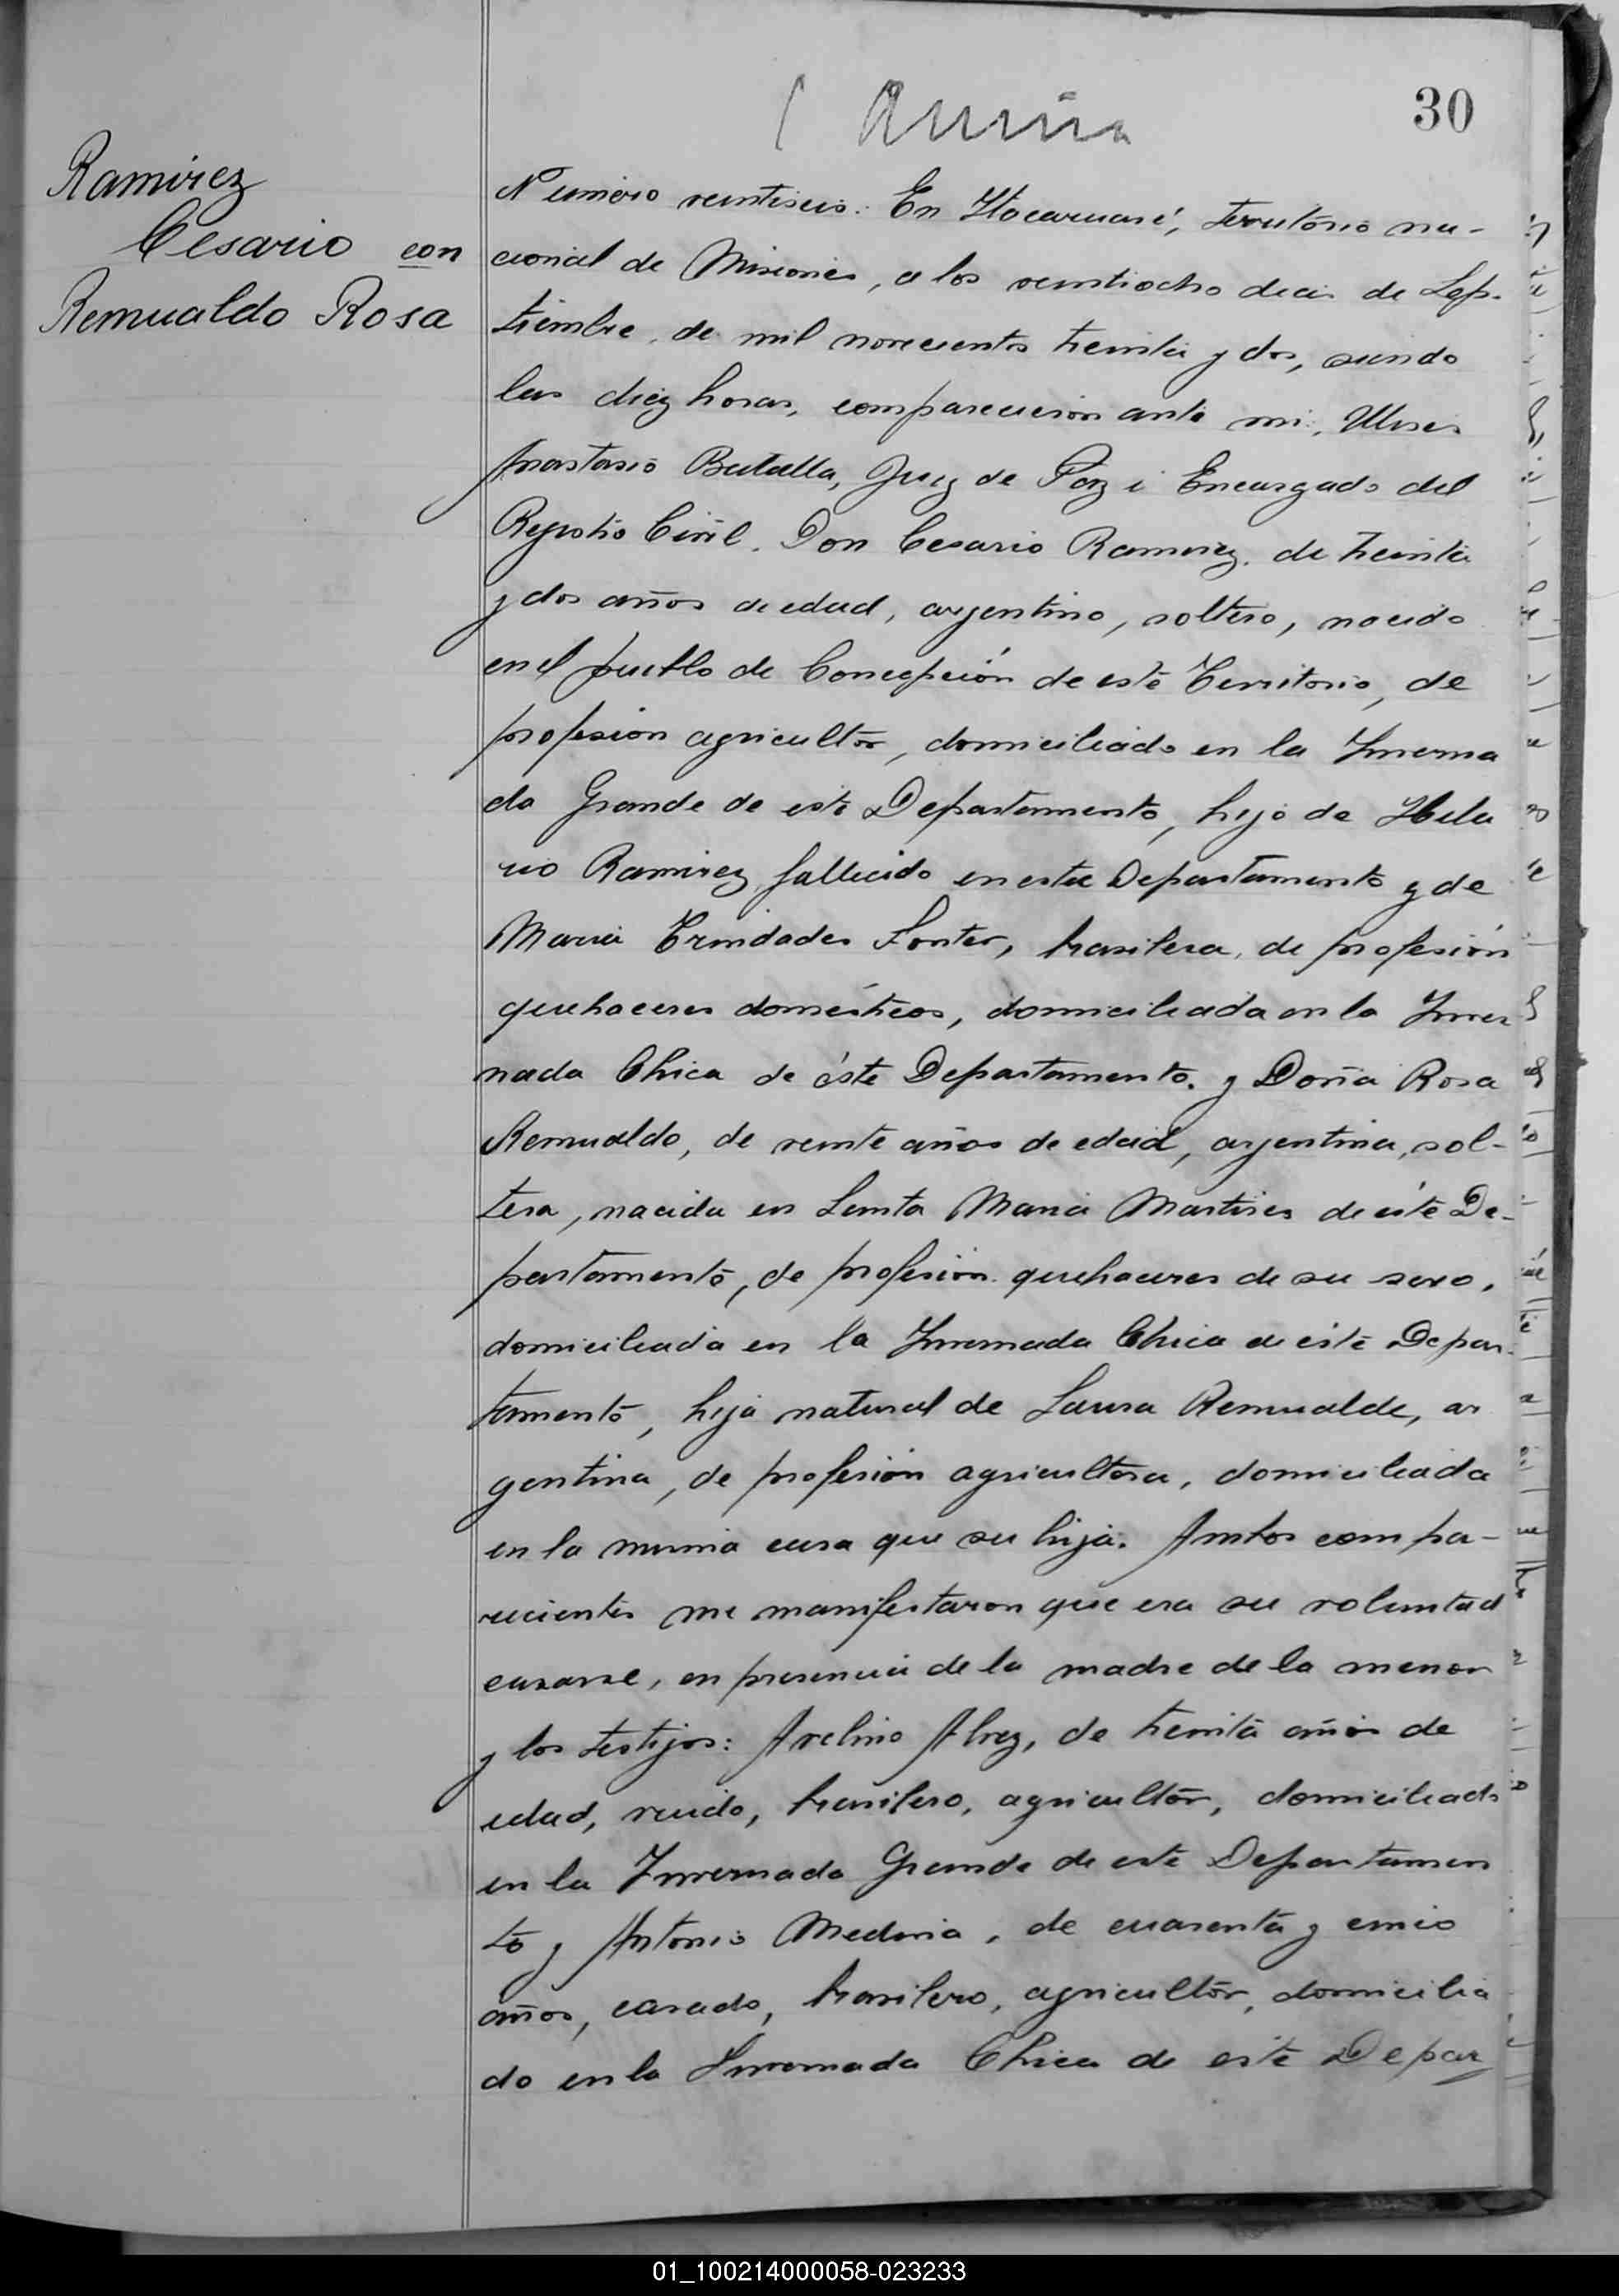 30
Ramirez
Cesario con
Remualdo Rosa
Numero veintiseis: En Itacaruaré, Territorio na-
cional de Misiones, a los veintiocho dias de Sep-
tiembre, de mil novecientos treinta y dos, siendo
las diez horas, comparecieron ante mi, Ulises
Anastasio Batalla, Juez de Paz i Encargado del
Registro Civil, Don Cesario Ramirez, de treinta
y dos años de edad, argentino, soltero, nacido
en el pueblo de Concepción de este Territorio, de
profesion agricultor, domiciliado en la Inverna
da Grande de este Departamento, hijo de Hila
rio Ramirez, fallecido en este Departamento y de
Maria Trindades Fontes, brasilera, de profesión
quehaceres domésticos, domiciliada en la Inver
nada Chica de éste Departamento. y Doña Rosa
Remualdo, de veinte años de edad, argentina, sol-
tera, nacida en Santa Maria Martires de este De-
partamento, de profesion quehaceres de su sexo,
domiciliada en la Invernada Chica de este Depar-
tamento, hija natural de Laura Remualde, ar
gentina, de profesion agricultora, domiciliada
en la misma casa que su hija. Ambos compa-
recientes me manifestaron que era su voluntad
casarse, en presencia de la madre de la menor
y los testigos: Avelino Alvez, de treinta años de
edad, viudo, brasilero, agricultor, domiciliado
en la Invernada Grande de este Departamen
to y Antonio Medina, de cuarenta y cinco
años, casado, brasilero, agricultor, domicilia
do en la Invernada Chica de este Depar
01_100214000058-023233